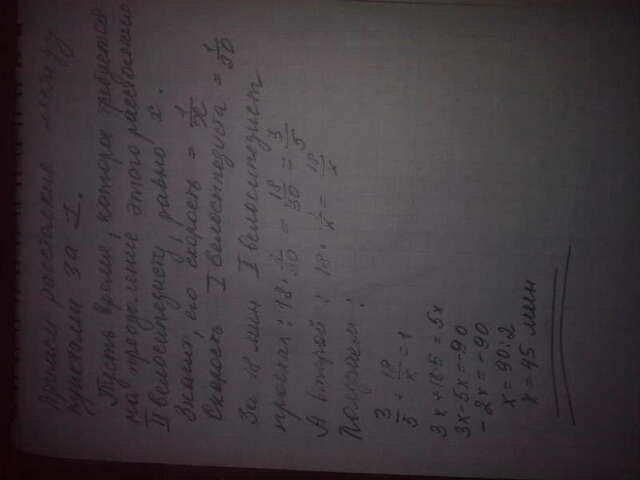 Примем расстояние между
пунктами за 1.
Пусть время, которое требуется
на преодоление этого расстояния
II велосипедисту, равно x.
Значит, его скорость = 1/x
Скорость I велосипедиста = 1/30
За 18 мин I велосипедист
проехал: 18 · 1/30 = 18/30 = 3/5
А второй: 18 · 1/x = 18/x
Получаем:
3/5 + 18/x = 1
3x + 18·5 = 5x
3x - 5x = -90
-2x = -90
x = 90:2
x = 45 мин